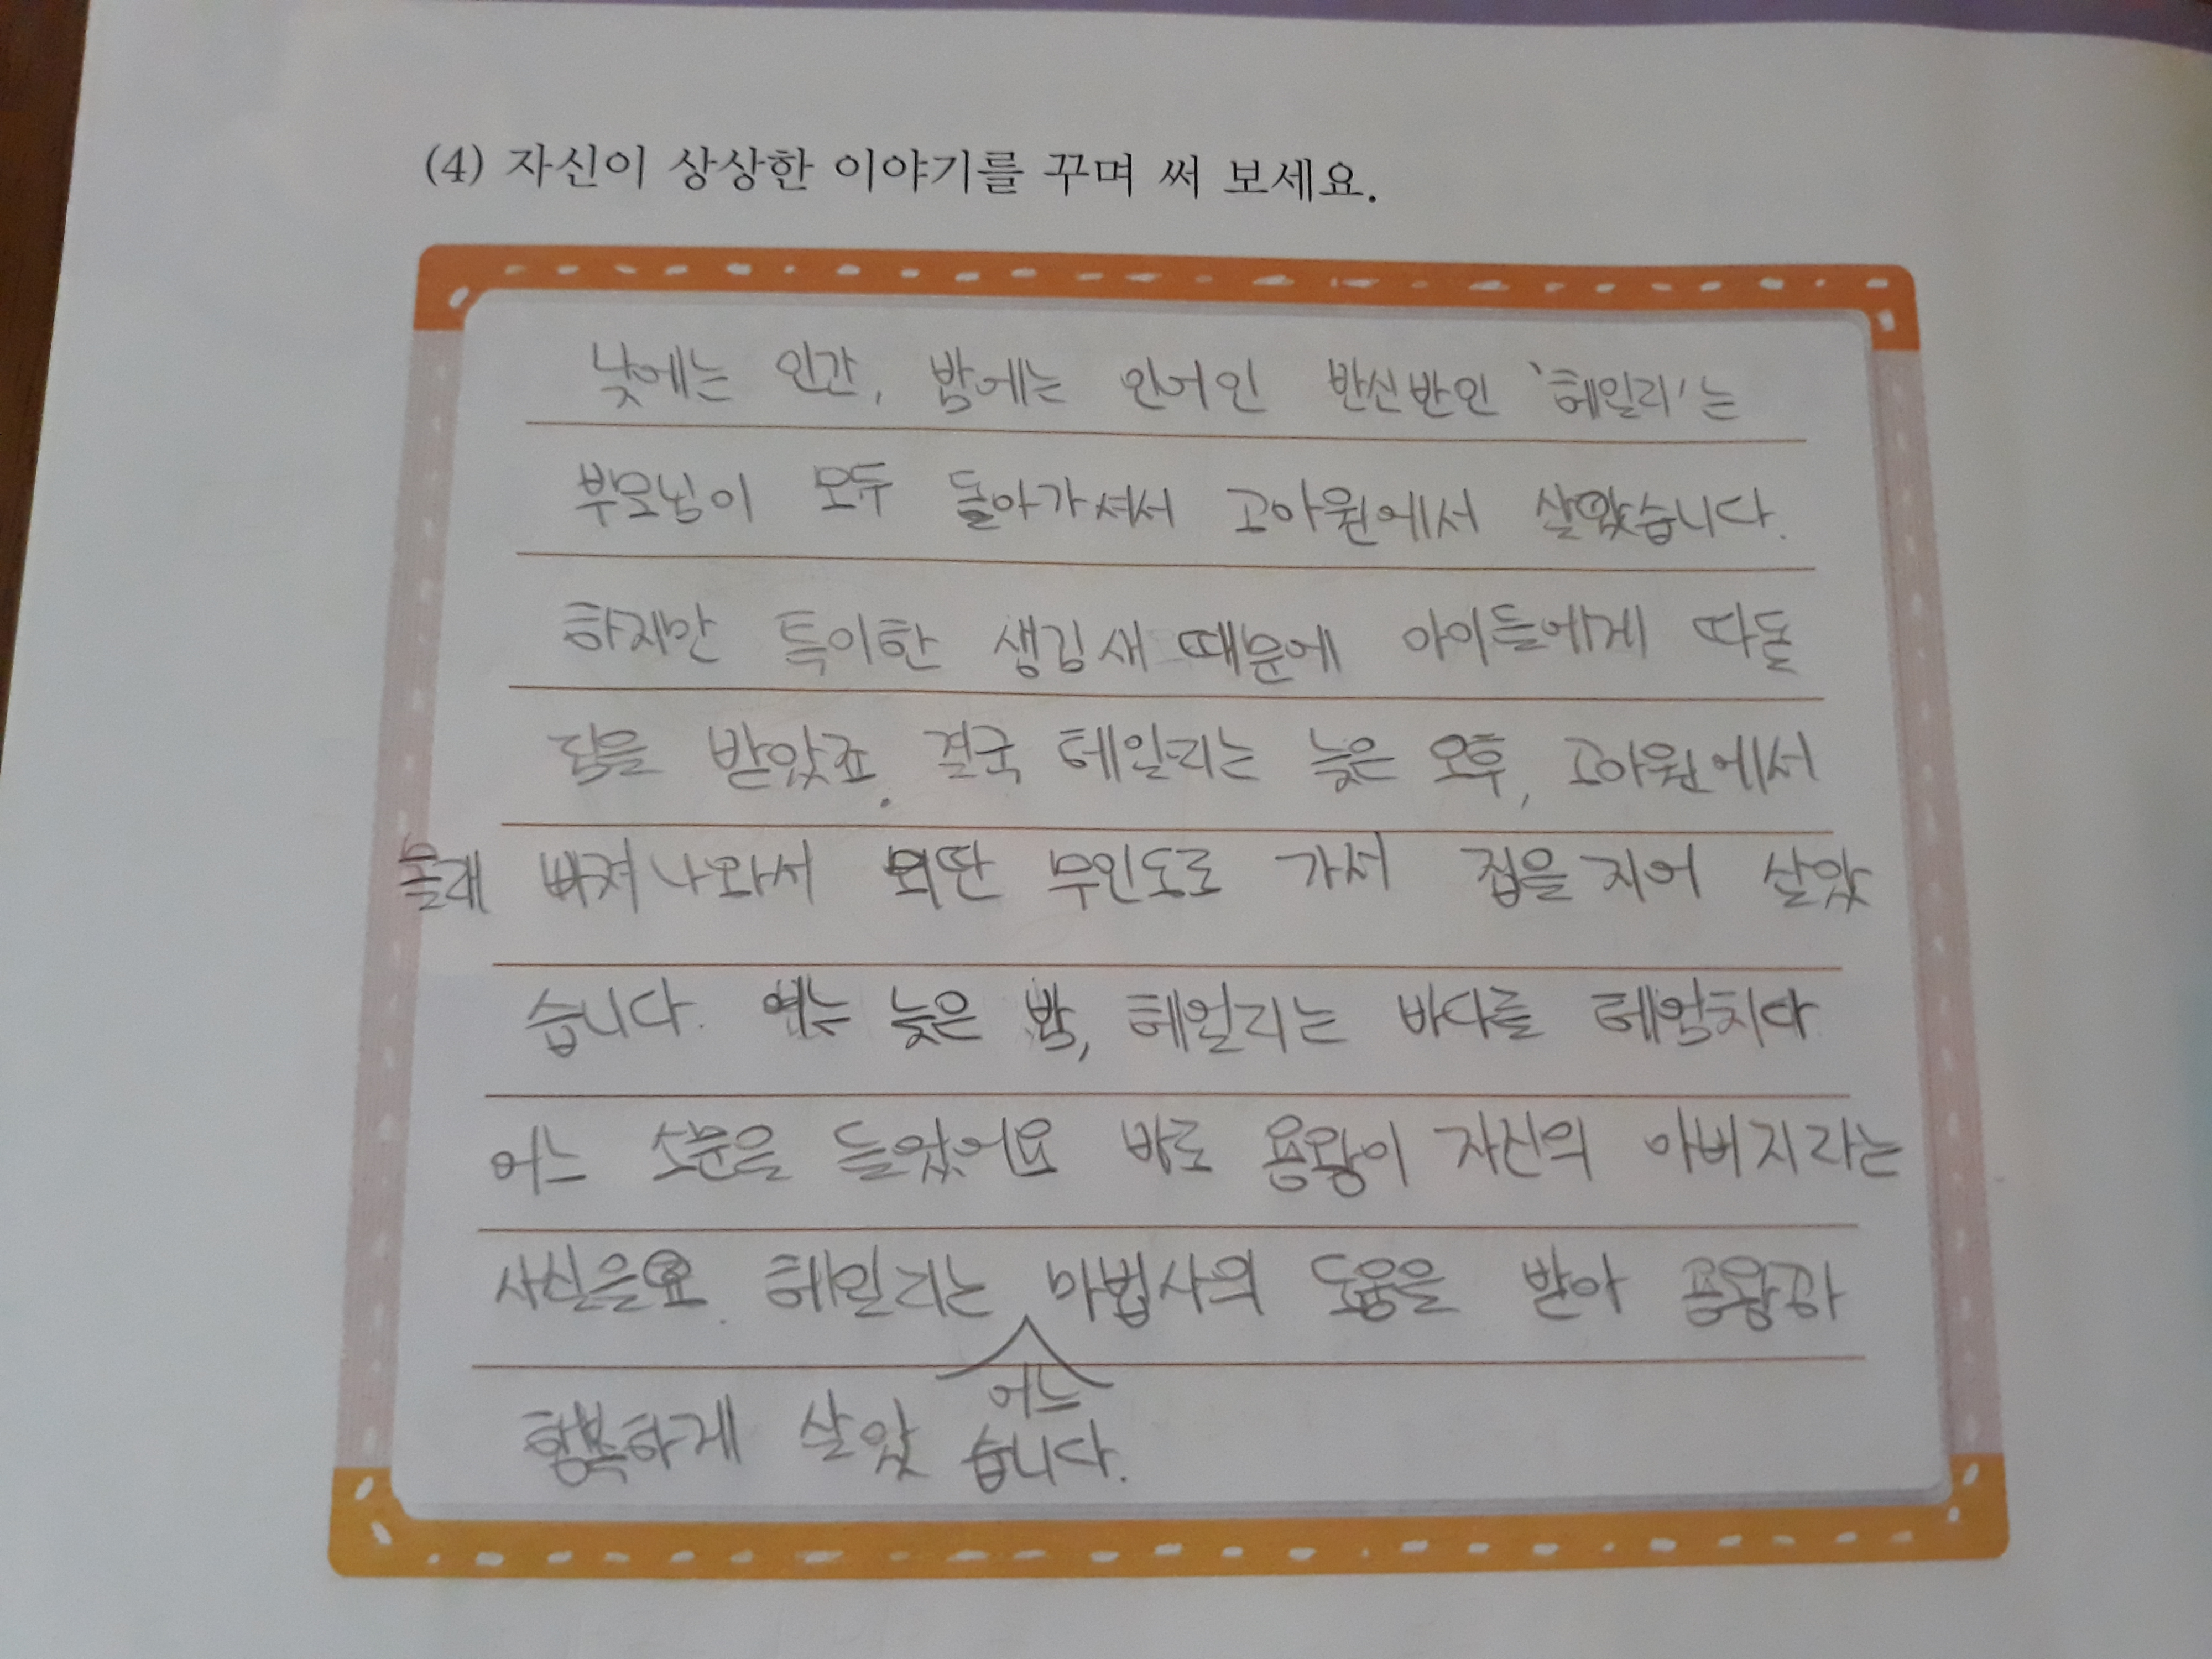 (4) 자신이 상상한 이야기를 꾸며 써 보세요.
낮에는 인간, 밤에는 인어인 반신반인 '헤일리'는
부모님이 모두 돌아가셔서 고아원에서 살았습니다.
하지만 특이한 생김새 때문에 아이들에게 따돌
림을 받았죠. 결국 헤일리는 늦은 오후, 고아원에서
몰래 빠져나와서 외딴 무인도로 가서 집을 지어 살았
습니다. 여느 늦은 밤, 헤일리는 바다를 헤엄치다
어느 소문을 들었어요 바로 용왕이 자신의 아버지라는
사실을요. 헤일리는 마법사의 도움을 받아 용왕과
어느
행복하게 살았습니다.